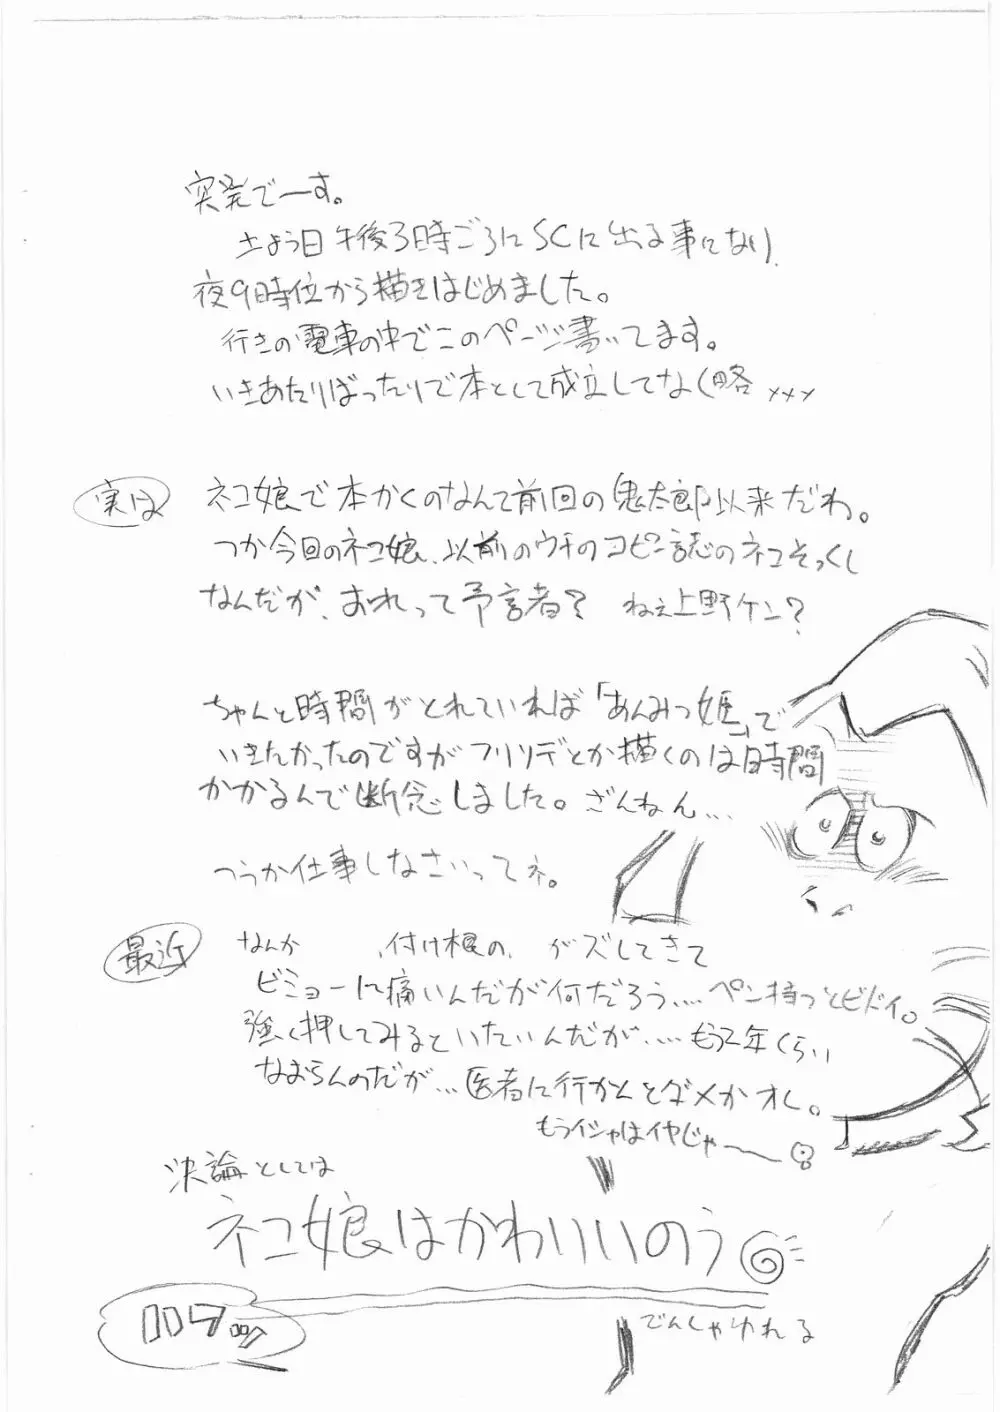 突発でーす。
土よう日午後3時ごろにSCに出る事になり、
夜9時位から描きはじめました。
行きの電車の中でこのページ書いてます。
いきあたりばったりで本として成立してなく(略 xxx
実は
ネコ娘で本かくのなんて前回の鬼太郎以来だわ。
つか今回のネコ娘、以前のウチのコピー誌のネコそっくし
なんだが、おれって予言者? ねぇ上野ケン?
ちゃんと時間がとれていれば「あんみつ姫」で
いきたかったのですがフリソデとか描くのは時間
かかるんで断念しました。ざんねん…
つうか仕事しなさいってネ。
最近
なんか 付け根の がズしてきて
ビミョーに痛いんだが何だろう…‥ペン持つとヒドイ。
強く押してみるといたいんだが…‥もう2年くらい
なおらんのだが…医者に行かんとダメかオレ。
もうイシャはイヤじゃ〜
決論としては
ネコ娘はかわいいのう
でんしゃゆれる